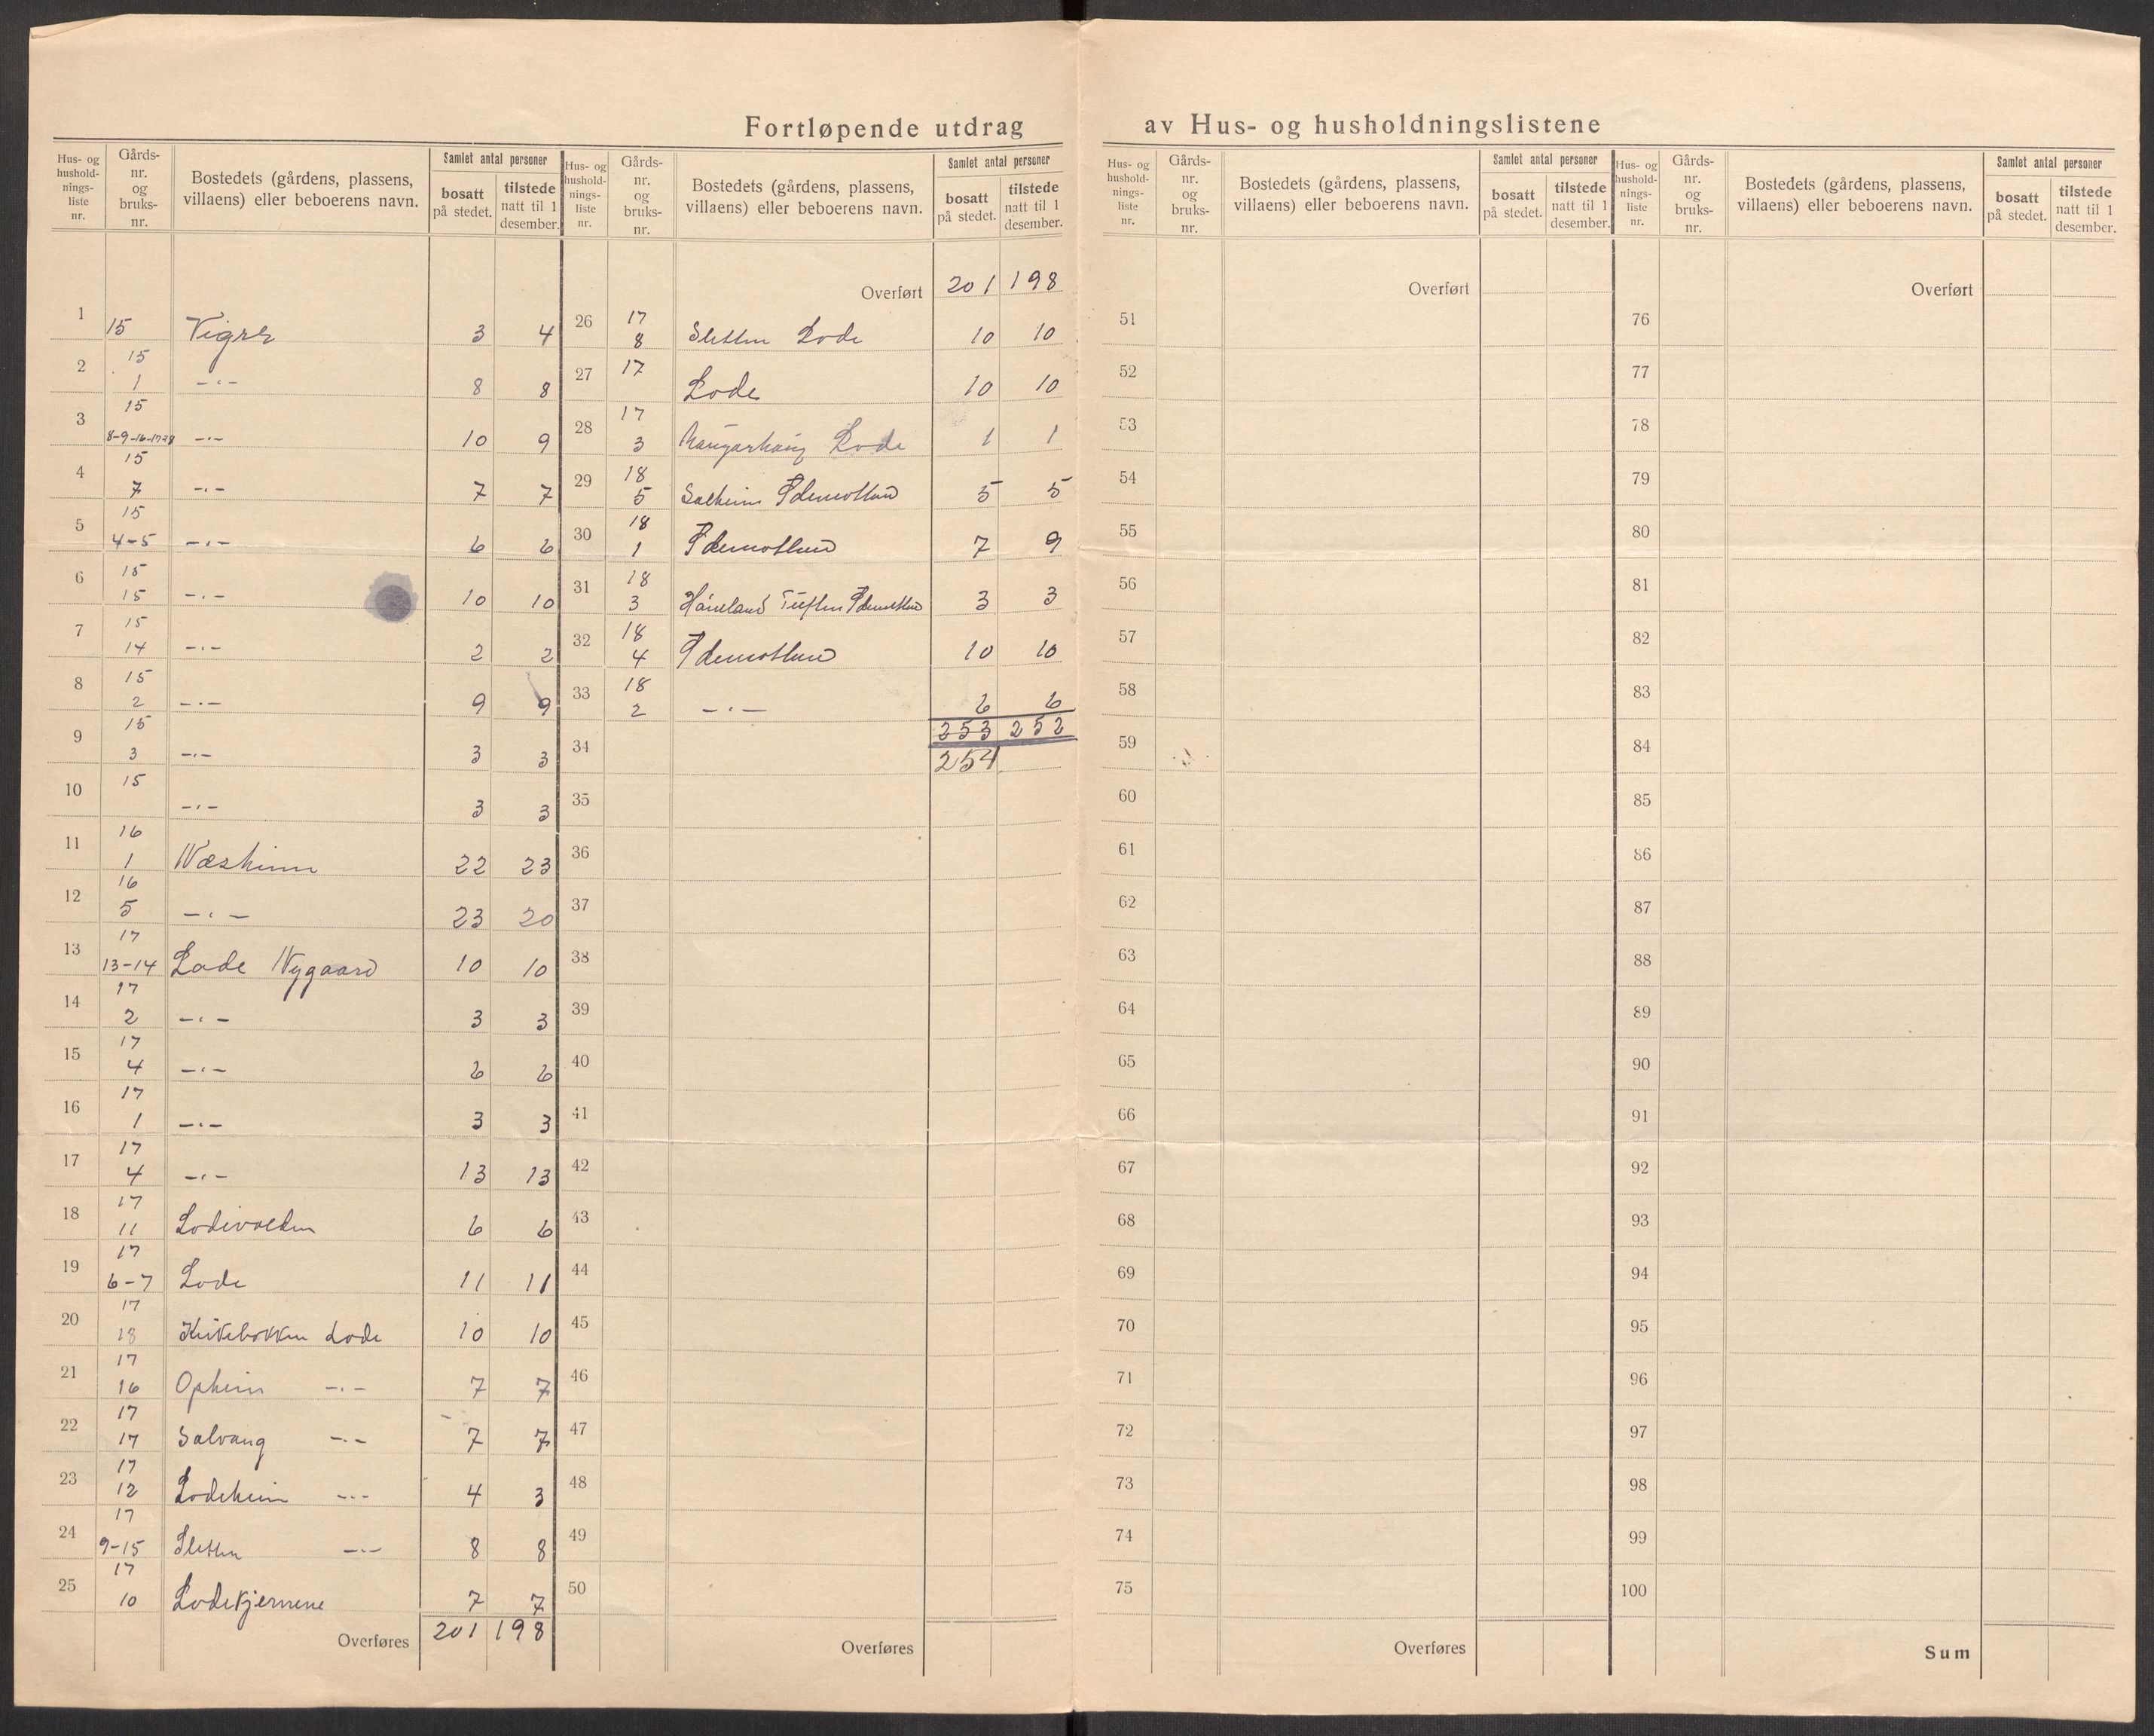 Fortløpende utdrag av Hus- og husholdningslistene
Hus- og hushold- nings- liste nr. | Gårds- nr. og bruks- nr. | Bostedets (gårdens, plassens, villaens) eller beboerens navn. | Samlet antal personer | bosatt på stedet. | tilstede natt til 1 desember.
1 | 15 | Vigre | 3 | 4
2 | 15 1 | -"- | 8 | 8
3 | 15 8-9-16-17-18 | -"- | 10 | 9
4 | 15 7 | -"- | 7 | 7
5 | 15 4-5 | -"- | 6 | 6
6 | 15 15 | -"- | 10 | 10
7 | 15 14 | -"- | 2 | 2
8 | 15 2 | -"- | 9 | 9
9 | 15 3 | -"- | 3 | 3
10 | 15 | -"- | 3 | 3
11 | 16 1 | Næsheim | 22 | 23
12 | 16 5 | -"- | 23 | 20
13 | 17 13-14 | Lode Nygaard | 10 | 10
14 | 17 2 | -"- | 3 | 3
15 | 17 4 | -"- | 6 | 6
16 | 17 1 | -"- | 3 | 3
17 | 17 4 | -"- | 13 | 13
18 | 17 11 | Lodevolden | 6 | 6
19 | 17 6-7 | Lode | 11 | 11
20 | 17 18 | Kirkebakken Lode | 10 | 10
21 | 17 16 | Opheim -"- | 7 | 7
22 | 17 17 | Solvang -"- | 7 | 7
23 | 17 12 | Lodeheim -"- | 4 | 3
24 | 17 9-15 | Sletten -"- | 8 | 8
25 | 17 10 | Lodekjernene | 7 | 7
Overføres | 201 | 198
Hus- og hushold- nings- liste nr. | Gårds- nr. og bruks- nr. | Bostedets (gårdens, plassens, villaens) eller beboerens navn. | Samlet antal personer | bosatt på stedet. | tilstede natt til 1 desember.
Overført | 201 | 198
26 | 17 8 | Sletten Lode | 10 | 10
27 | 17 | Lode | 10 | 10
28 | 17 3 | Lode | 1 | 1
29 | 18 5 | Solheim | 5 | 5
30 | 18 1 | 7 | 9
31 | 18 3 | 3 | 3
32 | 18 4 | 10 | 10
33 | 18 2 | -"- | 6 | 6
253 | 252
34 | 254
35
36
37
38
39
40
41
42
43
44
45
46
47
48
49
50
Overføres
Hus- og hushold- nings- liste nr. | Gårds- nr. og bruks- nr. | Bostedets (gårdens, plassens, villaens) eller beboerens navn. | Samlet antal personer | bosatt på stedet. | tilstede natt til 1 desember.
Overført
51
52
53
54
55
56
57
58
59
60
61
62
63
64
65
66
67
68
69
70
71
72
73
74
75
Overføres
Hus- og hushold- nings- liste nr. | Gårds- nr. og bruks- nr. | Bostedets (gårdens, plassens, villaens) eller beboerens navn. | Samlet antal personer | bosatt på stedet. | tilstede natt til 1 desember.
Overført
76
77
78
79
80
81
82
83
84
85
86
87
88
89
90
91
92
93
94
95
96
97
98
99
100
Sum